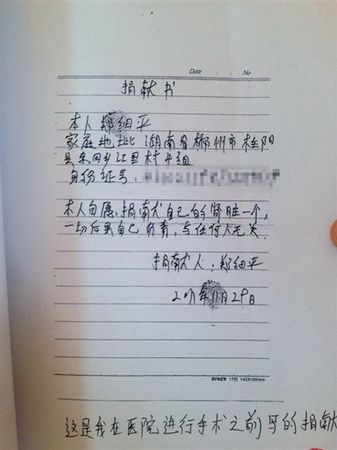 Date No
捐献书
本人郑细平
家庭地址湖南省郴州市桂阳
县东回乡江里村4组
身份证号:
本人自愿,捐献自己的肾脏一个,
一切后果自己负责,与任何人无关.
捐献人:郑细平
29日
17行 145X106mm
这是我在医院进行手术之前写的捐献